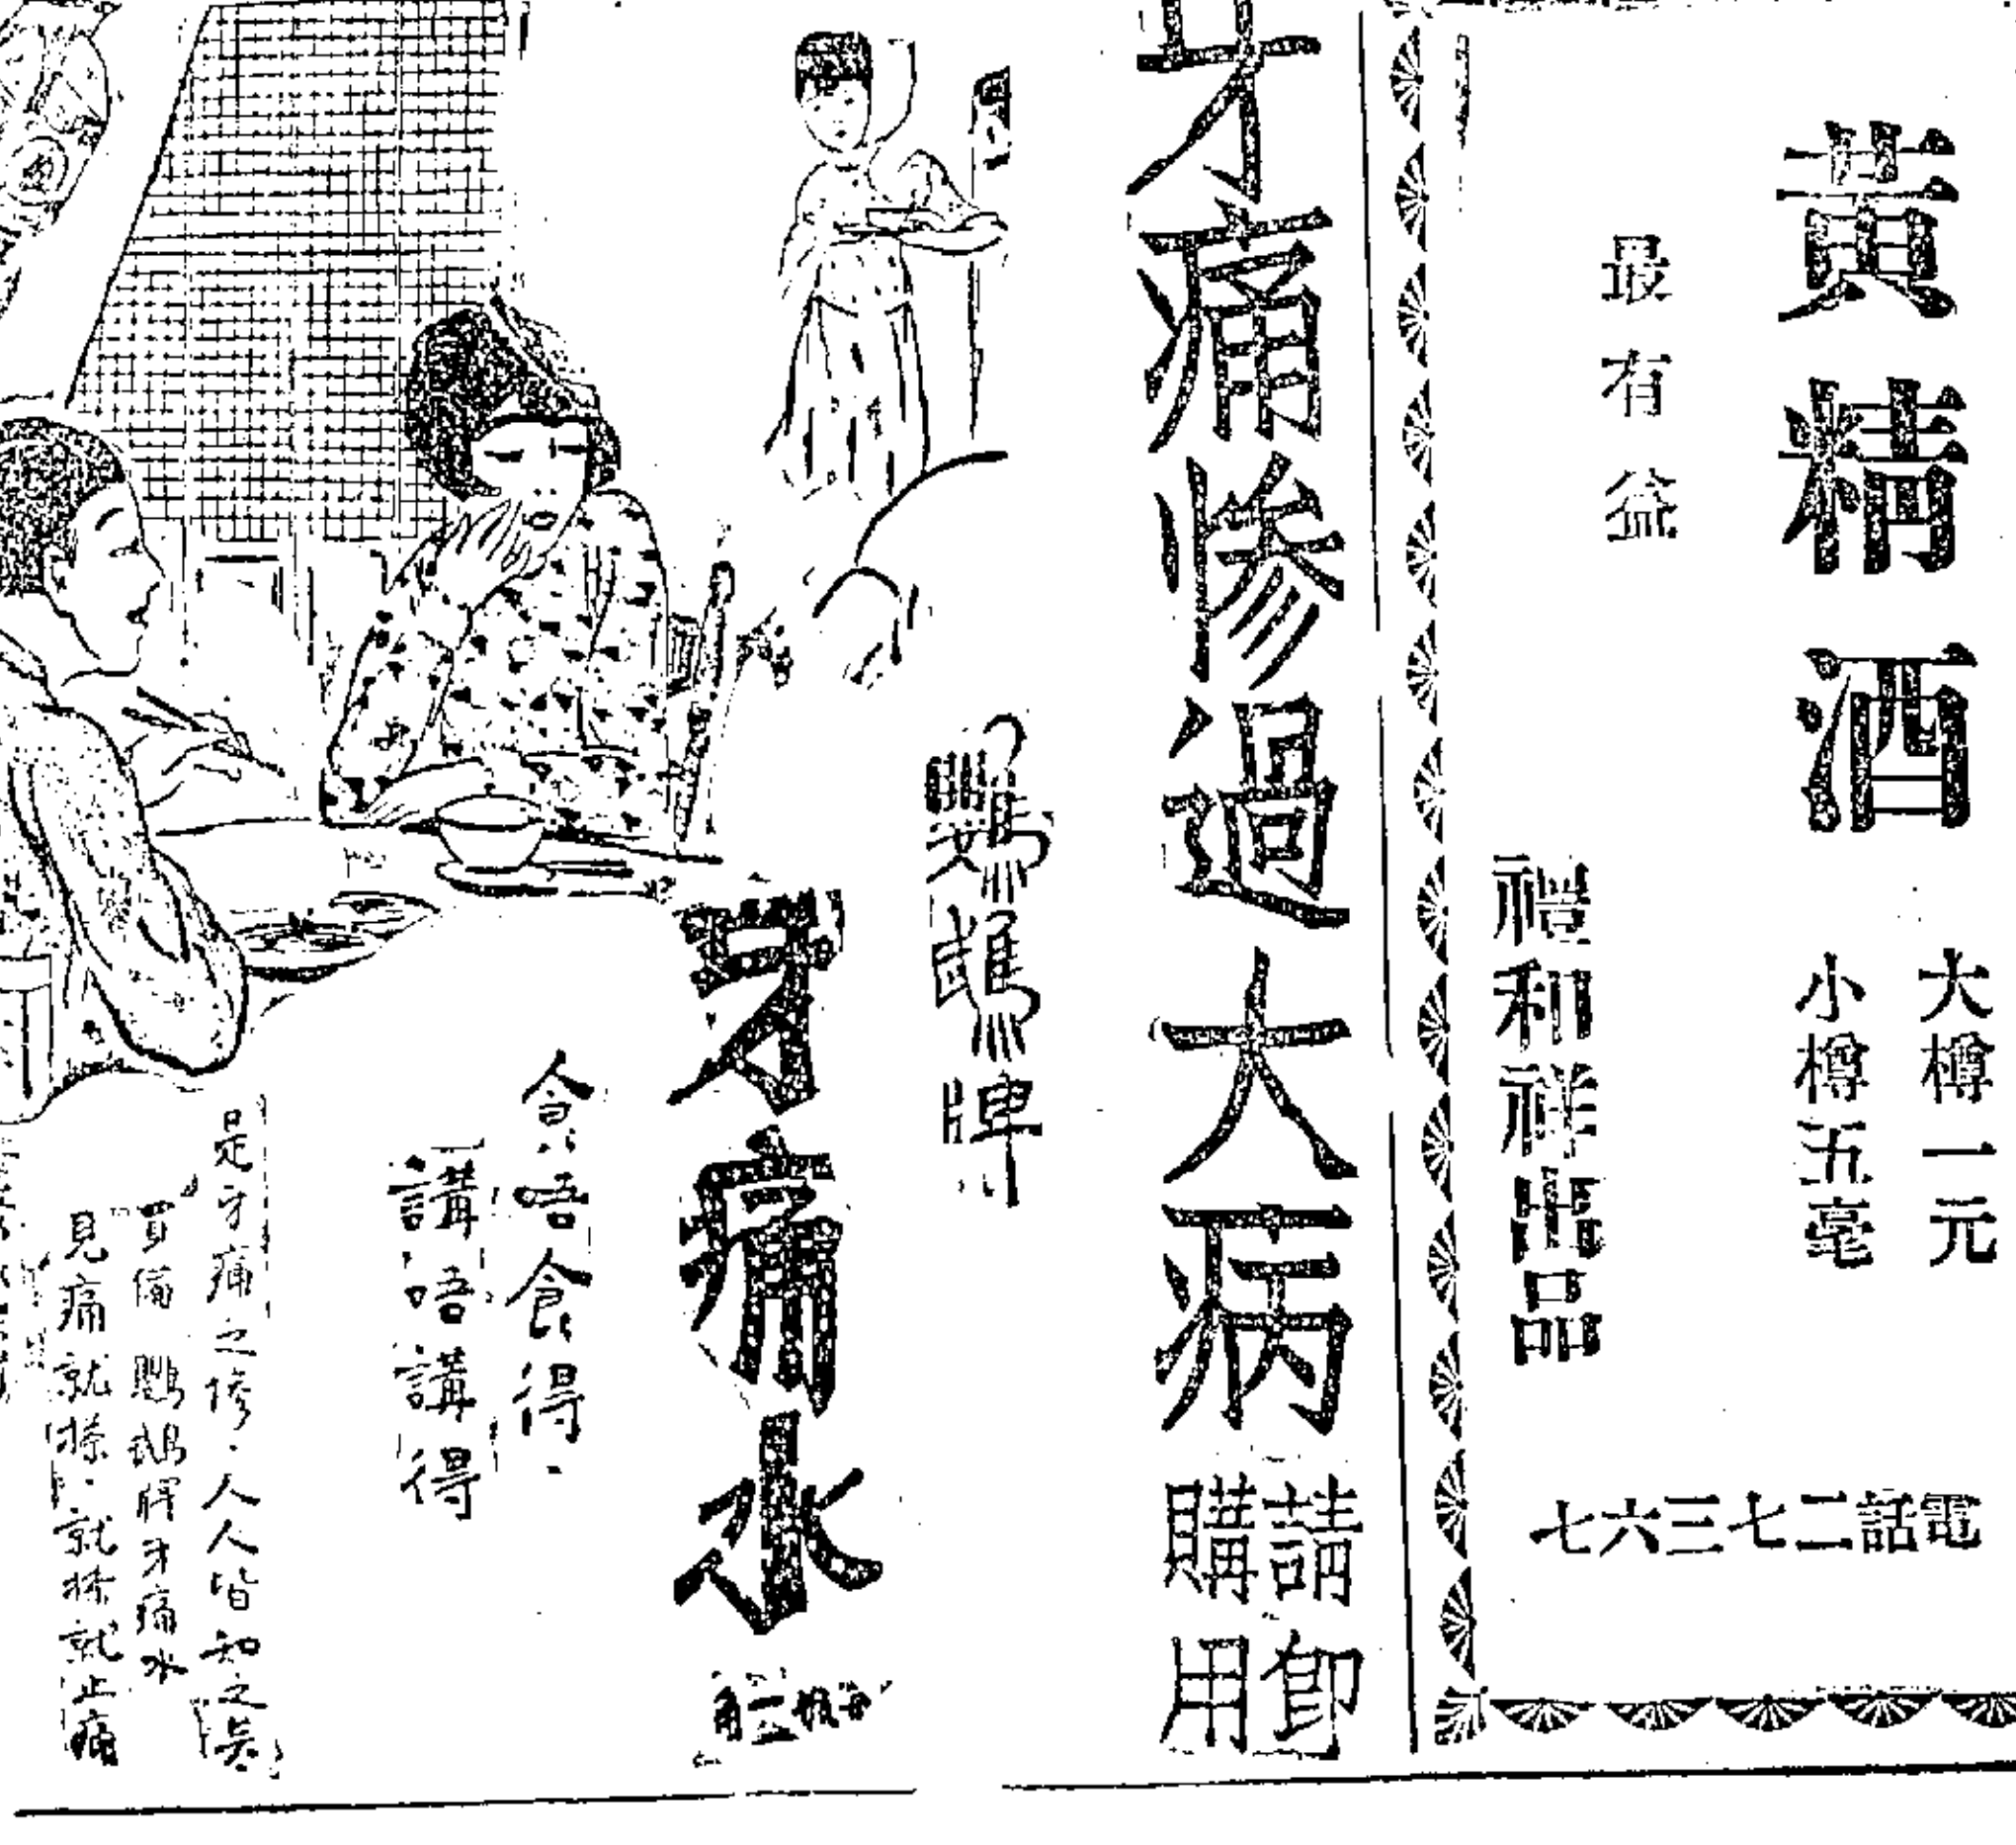 黃精酒
大樽一元
小樽五毫
最有益
禮和祥出品
電話二七三六七
牙痛慘過大病
請即
購用
鸚鵡牌
牙痛水
每瓶二角
食唔食得.
講唔講得
是牙痛之慘.人人皆知之矣.
買備鸚鵡牌牙痛水
見痛就搽.就搽就止痛